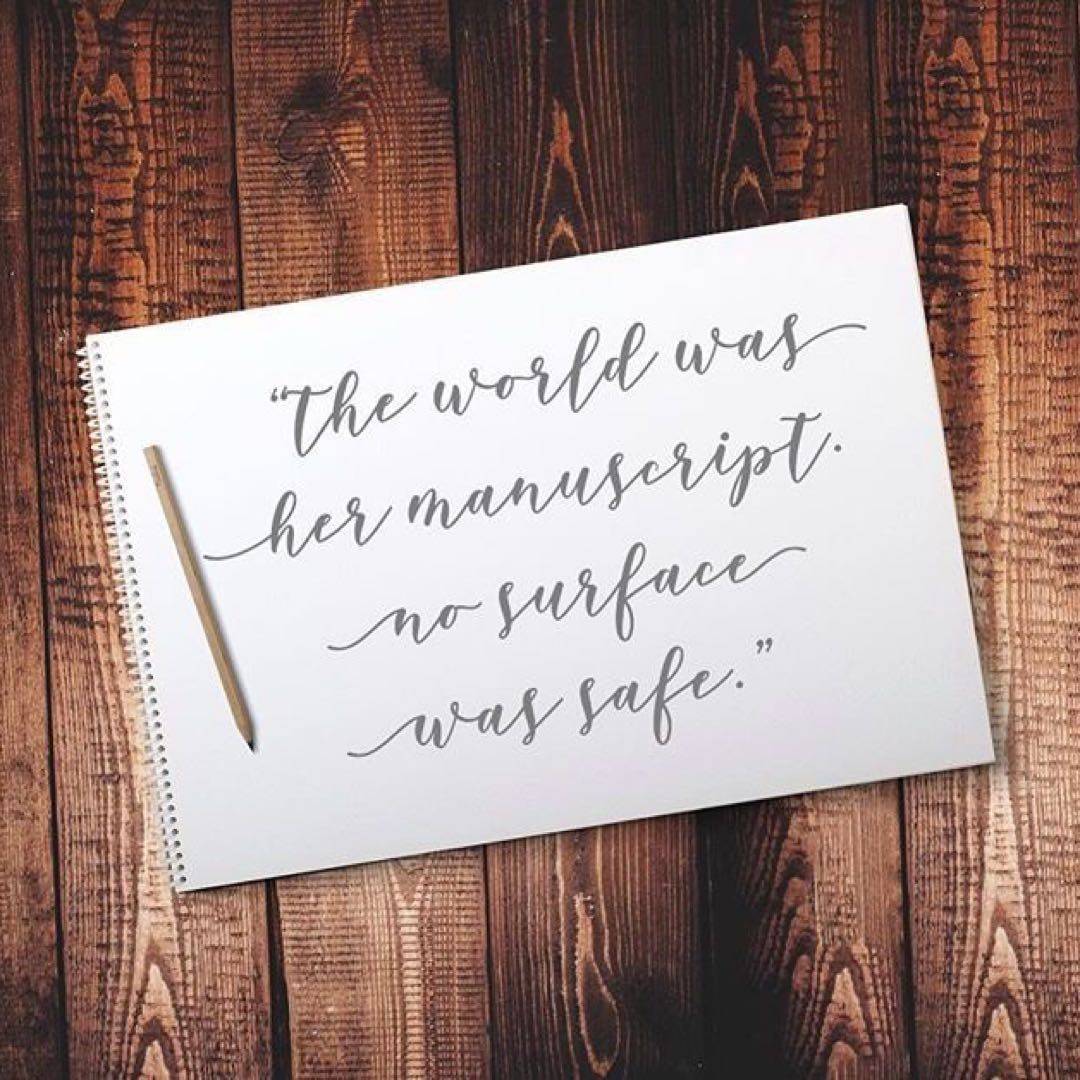 “The world was
her manuscript.
no surface
was safe.”